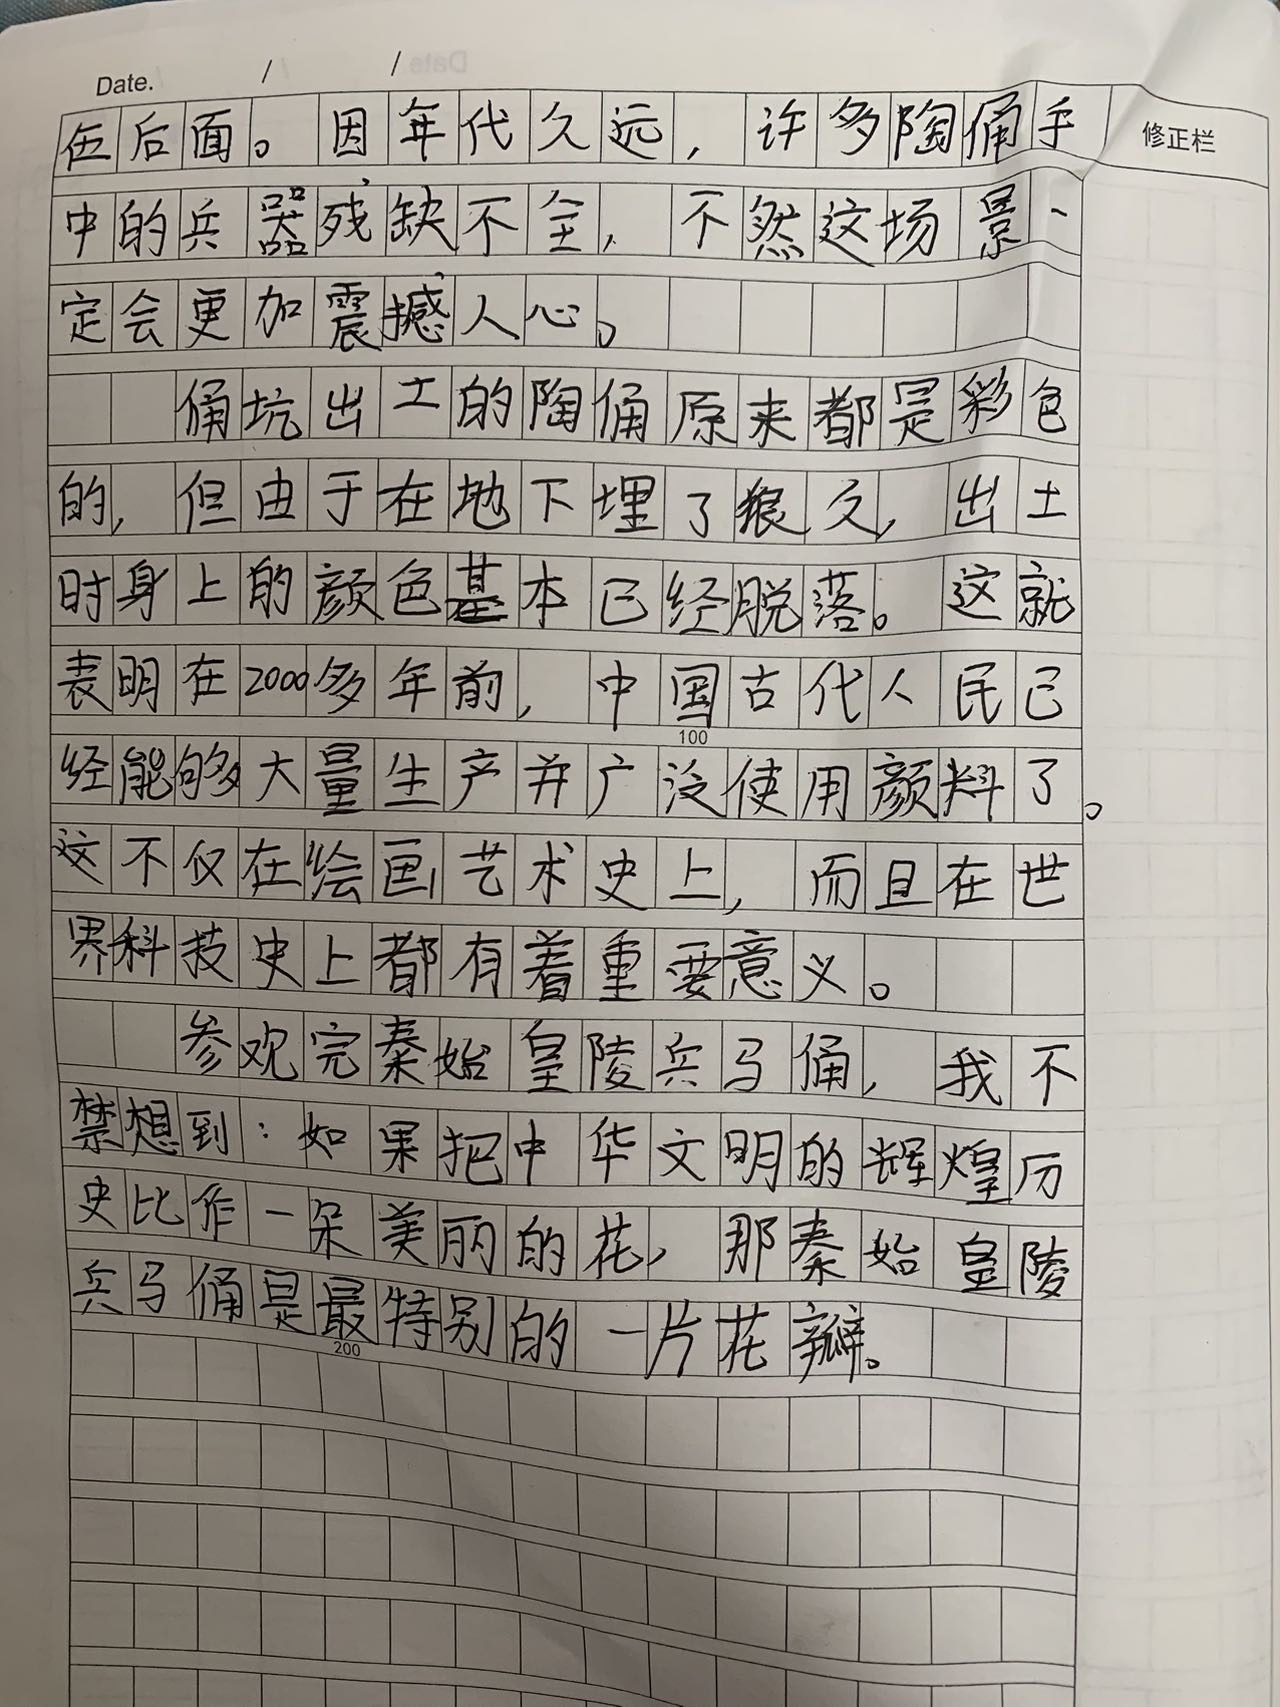 Date. / /
修正栏
伍后面。因年代久远，许多陶俑手
中的兵器残缺不全，不然这场景一
定会更加震撼人心。
俑坑出土的陶俑原来都是彩色
的，但由于在地下埋了很久，出土
时身上的颜色基本已经脱落。这就
表明在2000多年前，中国古代人民已
100
经能够大量生产并广泛使用颜料了。
这不仅在绘画艺术史上，而且在世
界科技史上都有着重要意义。
参观完秦始皇陵兵马俑，我不
禁想到：如果把中华文明的辉煌历
史比作一朵美丽的花，那秦始皇陵
兵马俑是最特别的一片花瓣。
200